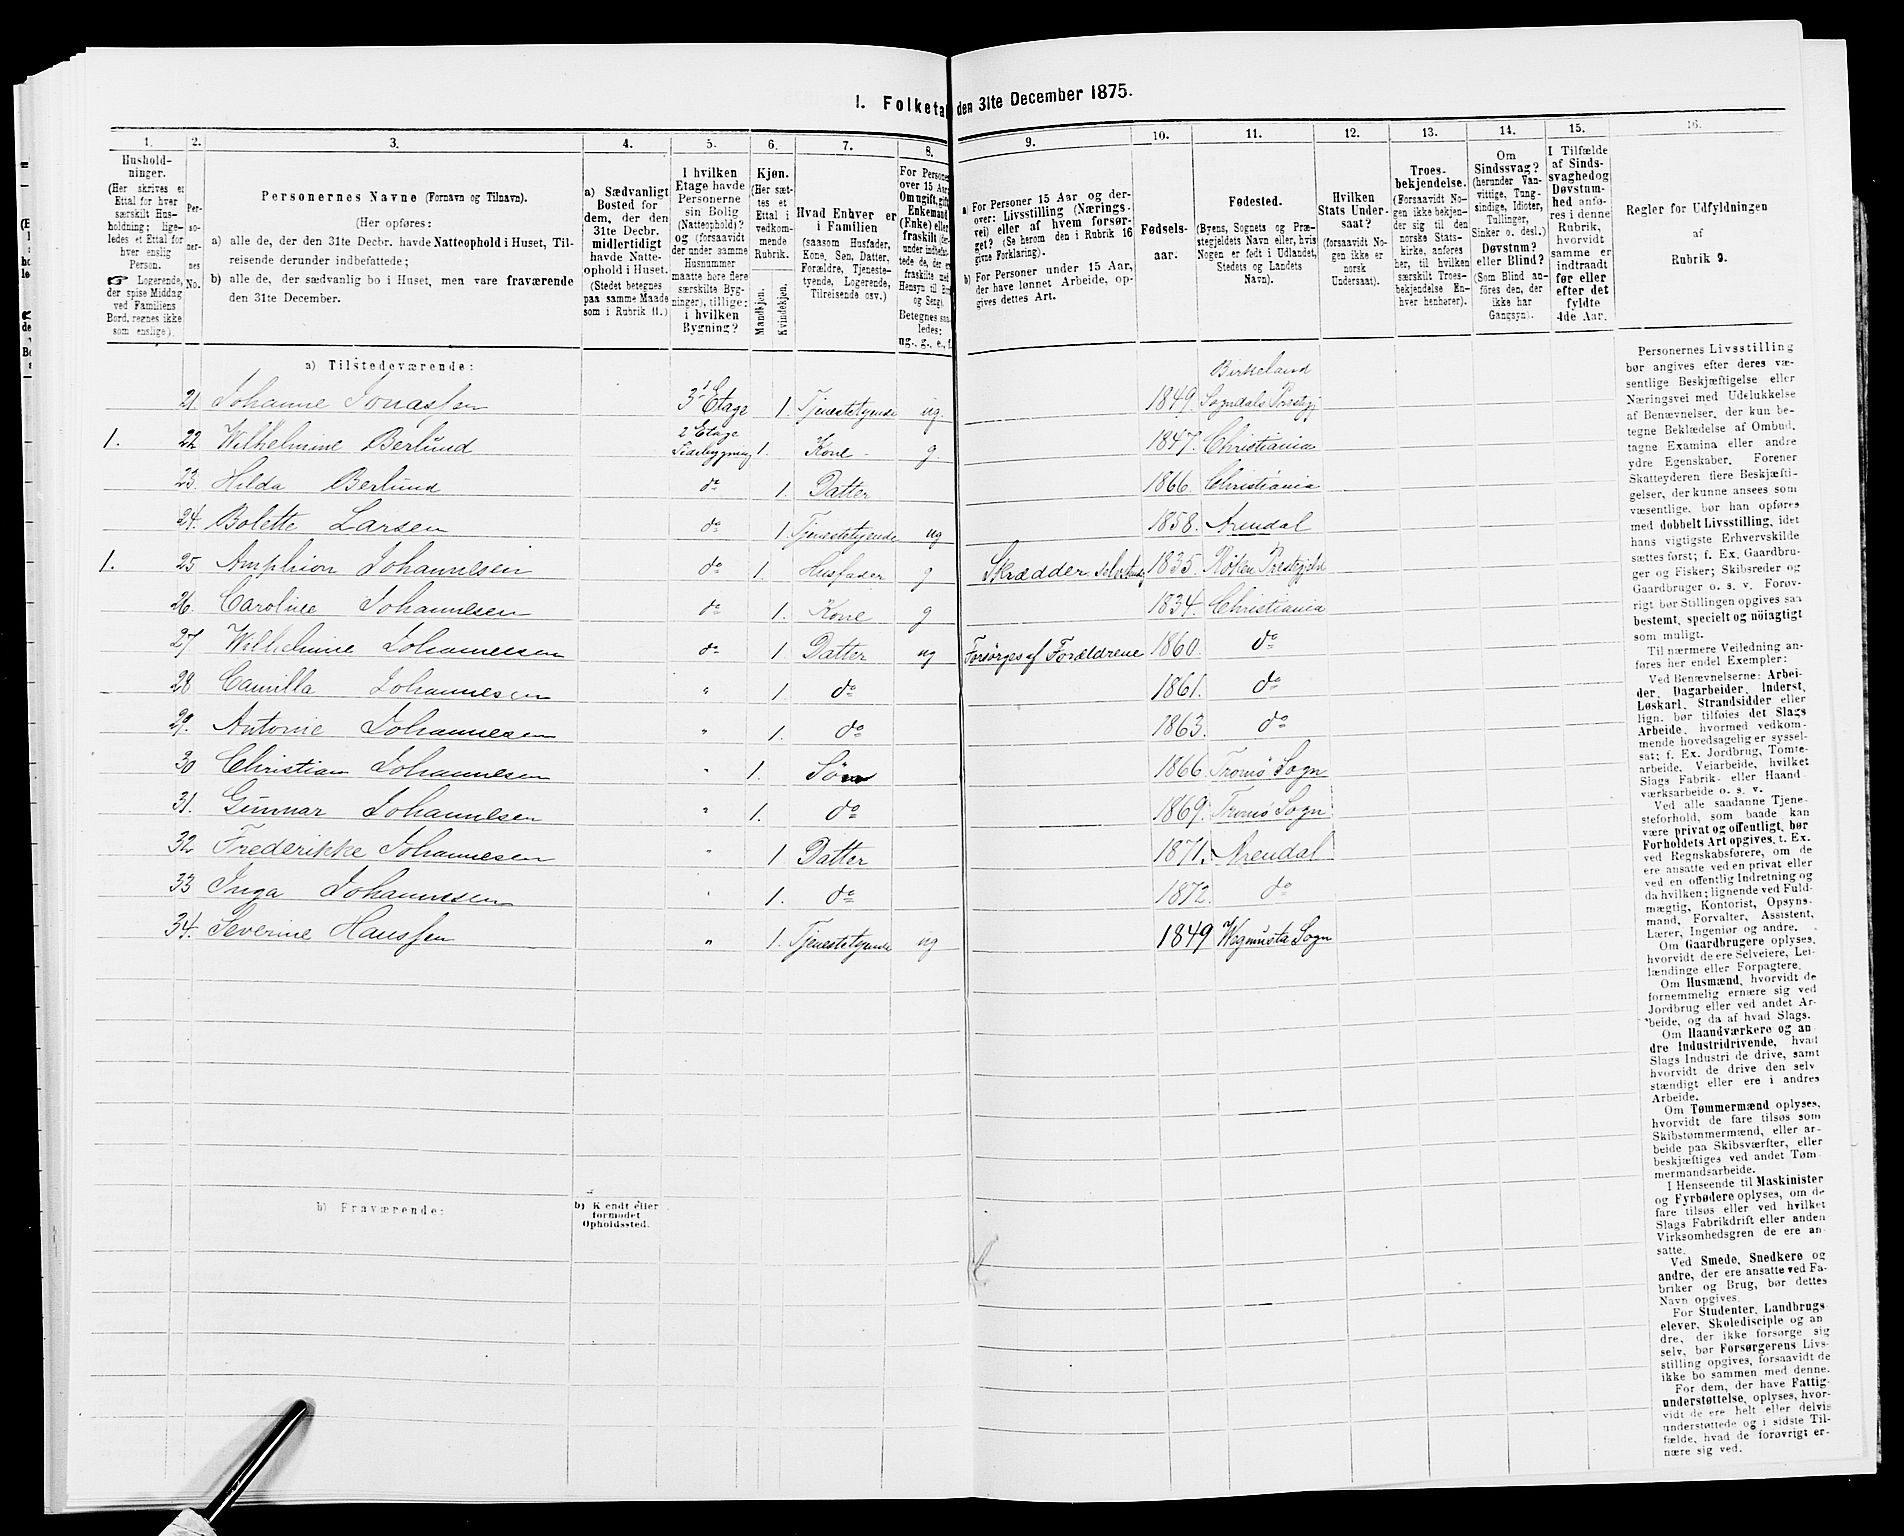 I. Folketal den 31te December 1875.
1.
Hushold-
ninger.
(Her skrives et
Ettal for hver
særskilt Hus-
holdning; lige-
ledes et Ettal for
hver enslig
Person.
Logerende,
der spise Middag
ved Familiens
Bord, regnes ikke
som enslige).
2.
Per-
so-
ner-
nes
No.
3.
Personernes Navne (Fornavn og Tilnavn).
(Her opføres:
a) alle de, der den 31te Decbr. havde Natteophold i Huset, Til-
reisende derunder indbefattede;
b) alle de, der sædvanlig bo i Huset, men vare fraværende
den 31te December.
4.
a) Sædvanligt
Bosted for
dem, der den
31te Decbr.
midlertidigt
havde Natte-
ophold i Huset.
(Stedet betegnes
paa samme Maade
som i Rubrik 11.)
5.
I hvilken
Etage havde
Personerne
sin Bolig
(Natteophold)?
og (forsaavidt
der under samme
Husnummer
maatte høre flere
særskilte Byg-
ninger), tillige:
i hvilken
Bygning?
6.
Kjøn.
(Her sæt-
tes et
Ettal i
vedkom-
mende
Rubrik.
Mandkjøn.
Kvindekjøn.
7.
Hvad Enhver er
i Familien
(saasom Husfader,
Kone, Søn, Datter,
Forældre, Tjeneste-
tyende, Logerende,
Tilreisende osv.)
8.
For Personer
over 15 Aar:
Om ugift, gift,
Enkemand
(Enke) eller
fraskilt
Betegnes saa-
ledes:
ug., g., e., f.
9.
a) For Personer 15 Aar og der-
over: Livsstilling (Nærings-
vei) eller af hvem forsør-
get? (Se herom den i Rubrik 16
givne Forklaring).
b) For Personer under 15 Aar,
der have lønnet Arbeide, op-
gives dettes Art.
10.
Fødsels-
aar.
11.
Fødested.
(Byens, Sognets og Præ-
stegjeldets Navn eller, hvis
Nogen er født i Udlandet,
Stedets og Landets
Navn).
12.
Hvilken
Stats Under-
saat?
(forsaavidt No-
gen ikke er
norsk
Undersaat).
13.
Troes-
bekjendelse.
(Forsaavidt No-
gen ikke bekjen-
der sig til den
norske Stats-
kirke, anføres
her, til hvilken
særskilt Troes-
bekjendelse En-
hver henhører).
14.
Om
Sindssvag?
(herunder Van-
vittige, Tung-
sindige, Idioter,
Tullinger,
Sinker o. desl.)
Døvstum?
eller Blind?
(Som Blind an-
føres den, der
ikke har
Gangsyn).
15.
I Tilfælde
af Sinds-
svaghed og
Døvstum-
hed anfø-
res i denne
Rubrik,
hvorvidt
samme er
indtraadt
før eller
efter det
fyldte
4de Aar.
16.
Regler for Udfyldningen
af
Rubrik 9.
a) Tilstedeværende:
21 Johanne Jonassen 3 Etage 1. Tjenestetyende ug. 1849. Birkeland Sogndals Prestgj
1. 22 Wilhelmine Berlund 2 Etage Sidebygning 1. Kone g. 1847. Christiania
23. Hilda Berlund do 1. Datter 1866. Christiania
24. Bolette Larsen do 1. Tjenestetyende ug 1858. Arendal
1. 25 Amphion Johannesen do 1. Husfader g Skrædder selvstændig 1835. Røken Prestgjeld
26. Caroline Johannesen do 1. Kone g 1834. Christiania
27 Wilhelmine Johannesen do 1. Datter ug Forsørges af Forældrene 1860. do
28 Camilla Johannesen " 1. do 1861. do
29. Antonie Johannesen " 1. do 1863. do
30 Christian Johannesen " 1. Søn 1866. Tromø Sogn
31. Gunnar Johannesen " 1. do 1869. Tromø Sogn
32 Frederikke Johannesen " 1 Datter 1871. Arendal
33 Inga Johannesen " 1. do 1872. do
34. Severine Hanssen " 1. Tjenestetyende ug 1849 Sogn
b) Fraværende:
b) Kendt eller
formodet
Opholdssted.
Personernes Livsstilling
bør angives efter deres væ-
sentlige Beskjæftigelse eller
Næringsvei med Udelukkelse
af Benævnelser, der kun be-
tegne Beklædelse af Ombud,
tagne Examina eller andre
ydre Egenskaber. Forener
Skatteyderen flere Beskjæfti-
gelser, der kunne ansees som
væsentlige, bør han opføres
med dobbelt Livsstilling, idet
hans vigtigste Erhvervskilde
sættes først; f. Ex. Gaardbru-
ger og Fisker; Skibsreder og
Gaardbruger o. s. v. Forøv-
rigt bør Stillingen opgives saa
bestemt, specielt og nöiagtigt
som muligt.
Til nærmere Veiledning an-
føres her endel Exempler:
Ved Benævnelserne: Arbei-
der, Dagarbeider, Inderst,
Løskarl, Strandsidder eller
lign. bør tilføies det Slags
Arbeide, hvormed vedkom-
mende hovedsagelig er syssel-
sat; f. Ex. Jordbrug, Tomte-
arbeide, Veiarbeide, hvilket
Slags Fabrik- eller Haand-
værksarbeide o. s. v.
Ved alle saadanne Tjene-
steforhold, som baade kan
være privat og offentligt, bør
Forholdets Art opgives, t. Ex.
ved Regnskabsførere, om de
ere ansatte ved en privat eller
ved en offentlig Indretning og
da hvilken; lignende ved Fuld-
mægtig, Kontorist, Opsyns-
mand, Forvalter, Assistent,
Lærer, Ingeniør og andre.
Om Gaardbrugere oplyses,
hvorvidt de ere Selveiere, Lei-
lændinge eller Forpagtere.
Om Husmænd, hvorvidt de
fornemmelig ernære sig ved
Jordbrug eller ved andet Ar-
beide, og da af hvad Slags.
Om Haandværkere og an
dre Industridrivende, hvad
Slags Industri de drive, samt
hvorvidt de drive den selv
stændigt eller ere i andres
Arbeide.
Om Tømmermænd oplyses,
hvorvidt de fare tilsøs som
Skibstømmermænd, eller ar-
beide paa Skibsværfter, eller
beskjæftiges ved andet Tøm-
mermandsarbeide.
I Henseende til Maskinister
og Fyrbødere oplyses, om de
fare tilsøs eller ved hvilket
Slags Fabrikdrift eller anden
Virksomhedsgren de ere an-
satte.
Ved Smede, Snedkere og
andre, der ere ansatte ved Fa-
briker og Brug, bør dettes
Navn opgives.
For Studenter, Landbrugs
elever, Skoledisciple og an
dre, der ikke forsørge sig
selv, bør Forsørgerens Livs-
stilling opgives, forsaavidt de
ikke bo sammen med denne.
For dem, der have Fattig-
understøttelse, oplyses, hvor-
vidt de ere helt eller delvis
understøttede og i sidste Til-
fælde, hvad de forøvrigt er-
nære sig ved.